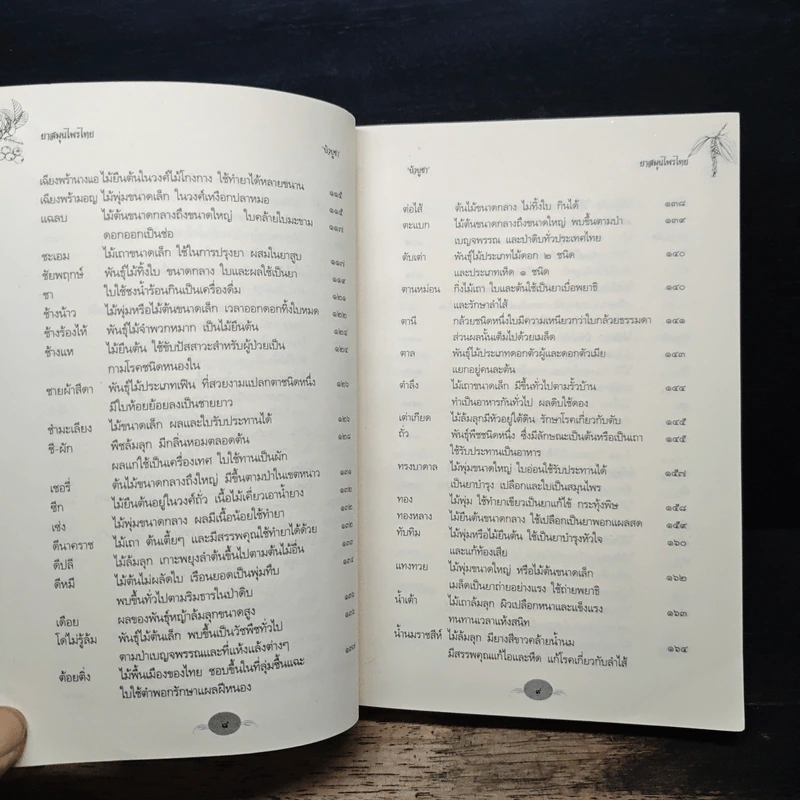 ยาสมุนไพรไทย
"บัวบูชา"
เฉียงพร้านางแอ ไม้ยืนต้นในวงศ์ไม้โกงกาง ใช้ทำยาได้หลายขนาน ๑๑๕
เฉียงพร้ามอญ ไม้พุ่มขนาดเล็ก ในวงศ์เหงือกปลาหมอ ๑๑๕
แฉลบ ไม้ต้นขนาดกลางถึงขนาดใหญ่ ใบคล้ายใบมะขาม ๑๑๗
ดอกออกเป็นช่อ
ชะเอม ไม้เถาขนาดเล็ก ใช้ในการปรุงยา ผสมในยาสูบ ๑๑๗
ชัยพฤกษ์ พันธุ์ไม้ทิ้งใบ ขนาดกลาง ใบและผลใช้เป็นยา ๑๑๙
ชา ใบใช้ชงน้ำร้อนกินเป็นเครื่องดื่ม ๑๒๑
ช้างน้าว ไม้พุ่มหรือไม้ต้นขนาดเล็ก เวลาออกดอกทิ้งใบหมด ๑๒๒
ช้างร้องไห้ พันธุ์ไม้จำพวกหมาก เป็นไม้ยืนต้น ๑๒๔
ช้างแห ไม้ยืนต้น ใช้ขับปัสสาวะสำหรับผู้ป่วยเป็น ๑๒๔
กามโรคชนิดหนองใน
ชายผ้าสีดา พันธุ์ไม้ประเภทเฟิน ที่สวยงามแปลกตาชนิดหนึ่ง ๑๒๖
มีใบห้อยย้อยลงเป็นชายยาว
ชำมะเลียง ไม้ขนาดเล็ก ผลและใบรับประทานได้ ๑๒๖
ชี-ผัก พืชล้มลุก มีกลิ่นหอมตลอดต้น ๑๒๘
ผลแก่ใช้เป็นเครื่องเทศ ใบใช้ทานเป็นผัก
เชอรี่ ต้นไม้ขนาดกลางถึงใหญ่ มีขึ้นตามป่าในเขตหนาว ๑๓๑
ซึก ไม้ยืนต้นอยู่ในวงศ์ถั่ว เนื้อไม้เคี่ยวเอาน้ำยาง ๑๓๒
เซ่ง ไม้พุ่มขนาดกลาง ผลมีเนื้อน้อยใช้ทำยา ๑๓๒
ดีนาคราช ไม้เถา ต้นเตี้ยๆ และมีสรรพคุณใช้ทำยาได้ด้วย ๑๓๒
ดีปลี ไม้ล้มลุก เกาะพยุงลำต้นขึ้นไปตามต้นไม้อื่น ๑๓๔
ดีหมี ไม้ต้นไม่ผลัดใบ เรือนยอดเป็นพุ่มทึบ
พบขึ้นทั่วไปตามริมธารในป่าดิบ
เดือย ผลของพันธุ์หญ้าล้มลุกขนาดสูง
โด่ไม่รู้ล้ม พันธุ์ไม้ต้นเล็ก พบขึ้นเป็นวัชพืชทั่วไป
ตามป่าเบญจพรรณและที่แห้งแล้งต่างๆ
ต้อยติ่ง ไม้พื้นเมืองของไทย ชอบขึ้นในที่ลุ่มชื้นแฉะ
ใบใช้ตำพอกรักษาแผลฝีหนอง
๘
"บัวบูชา"
ยาสมุนไพรไทย
ต่อไส้ ต้นไม้ขนาดกลาง ไม่ทิ้งใบ กินได้ ๑๓๘
ตะแบก ไม้ต้นขนาดกลางถึงขนาดใหญ่ พบขึ้นตามป่า ๑๓๙
เบญจพรรณ และป่าดิบทั่วประเทศไทย
ตับเต่า พันธุ์ไม้ประเภทไม้ดอก ๒ ชนิด ๑๔๐
และประเภทเห็ด ๑ ชนิด
ตานหม่อน กิ่งไม้เถา ใบและต้นใช้เป็นยาเบื่อพยาธิ ๑๔๐
และรักษาลำไส้
ตานี กล้วยชนิดหนึ่งใบมีความเหนียวกว่าใบกล้วยธรรมดา ๑๔๑
ส่วนผลนั้นเต็มไปด้วยเมล็ด
ตาล พันธุ์ไม้ประเภทดอกตัวผู้และดอกตัวเมีย ๑๔๓
แยกอยู่คนละต้น
ตำลึง ไม้เถาขนาดเล็ก มีขึ้นทั่วไปตามรั้วบ้าน ๑๔๔
ทำเป็นอาหารกันทั่วไป ผลดิบใช้ดอง
เต่าเกียด ไม้ล้มลุกมีหัวอยู่ใต้ดิน รักษาโรคเกี่ยวกับตับ ๑๔๕
ถั่ว พันธุ์พืชชนิดหนึ่ง ซึ่งมีลักษณะเป็นต้นหรือเป็นเถา ๑๔๕
ใช้รับประทานเป็นอาหาร
ทรงบาดาล ไม้พุ่มขนาดใหญ่ ใบอ่อนใช้รับประทานได้ ๑๕๗
เป็นยาบำรุง เปลือกและใบเป็นสมุนไพร
ทอง ไม้พุ่ม ใช้ทำยาเขียวเป็นยาแก้ไข้ กระทุ้งพิษ ๑๕๘
ทองหลาง ไม้ยืนต้นขนาดกลาง ใช้เปลือกเป็นยาพอกแผลสด ๑๕๙
ทับทิม ไม้พุ่มหรือไม้ยืนต้น ใช้เป็นยาบำรุงหัวใจ ๑๖๐
และแก้ท้องเสีย
แทงทวย ไม้พุ่มขนาดใหญ่ หรือไม้ต้นขนาดเล็ก ๑๖๒
เมล็ดเป็นยาถ่ายอย่างแรง ใช้ถ่ายพยาธิ
น้ำเต้า ไม้เถาล้มลุก ผิวเปลือกหนาและแข็งแรง ๑๖๓
ทนทานเวลาแห้งสนิท
น้ำนมราชสีห์ ไม้ล้มลุก มียางสีขาวคล้ายน้ำนม ๑๖๔
มีสรรพคุณแก้ไอและหืด แก้โรคเกี่ยวกับลำไส้
๙